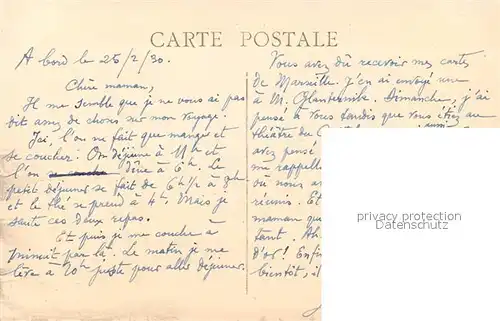 CARTE POSTALE
A bord le 25/2/30.
Chère maman,
Il me semble que je ne vous ai pas
dit assez de choses sur mon voyage.
Ici, l'on ne fait que manger et
se coucher. On déjeune à 11h et
l'on dîne à 6h. Le
petit déjeuner se fait de 6h 1/2 à 8h
et le thé se prend à 4h. Mais je
saute ces deux repas.
Et puis je me couche à
minuit par là. Le matin je me
lève à 10h juste pour aller déjeuner.
Vous avez dû recevoir mes cartes
de Marseille. J'en ai envoyé une
à M. Dimanche, j'ai
pensé à vous tandis que vous étiez au
théâtre du
avez pensé
me rappelle
où nous a
réunis. Et
maman que
tant. Ah
d'or! Enfin
bientôt, il
privacy protection
Datenschutz